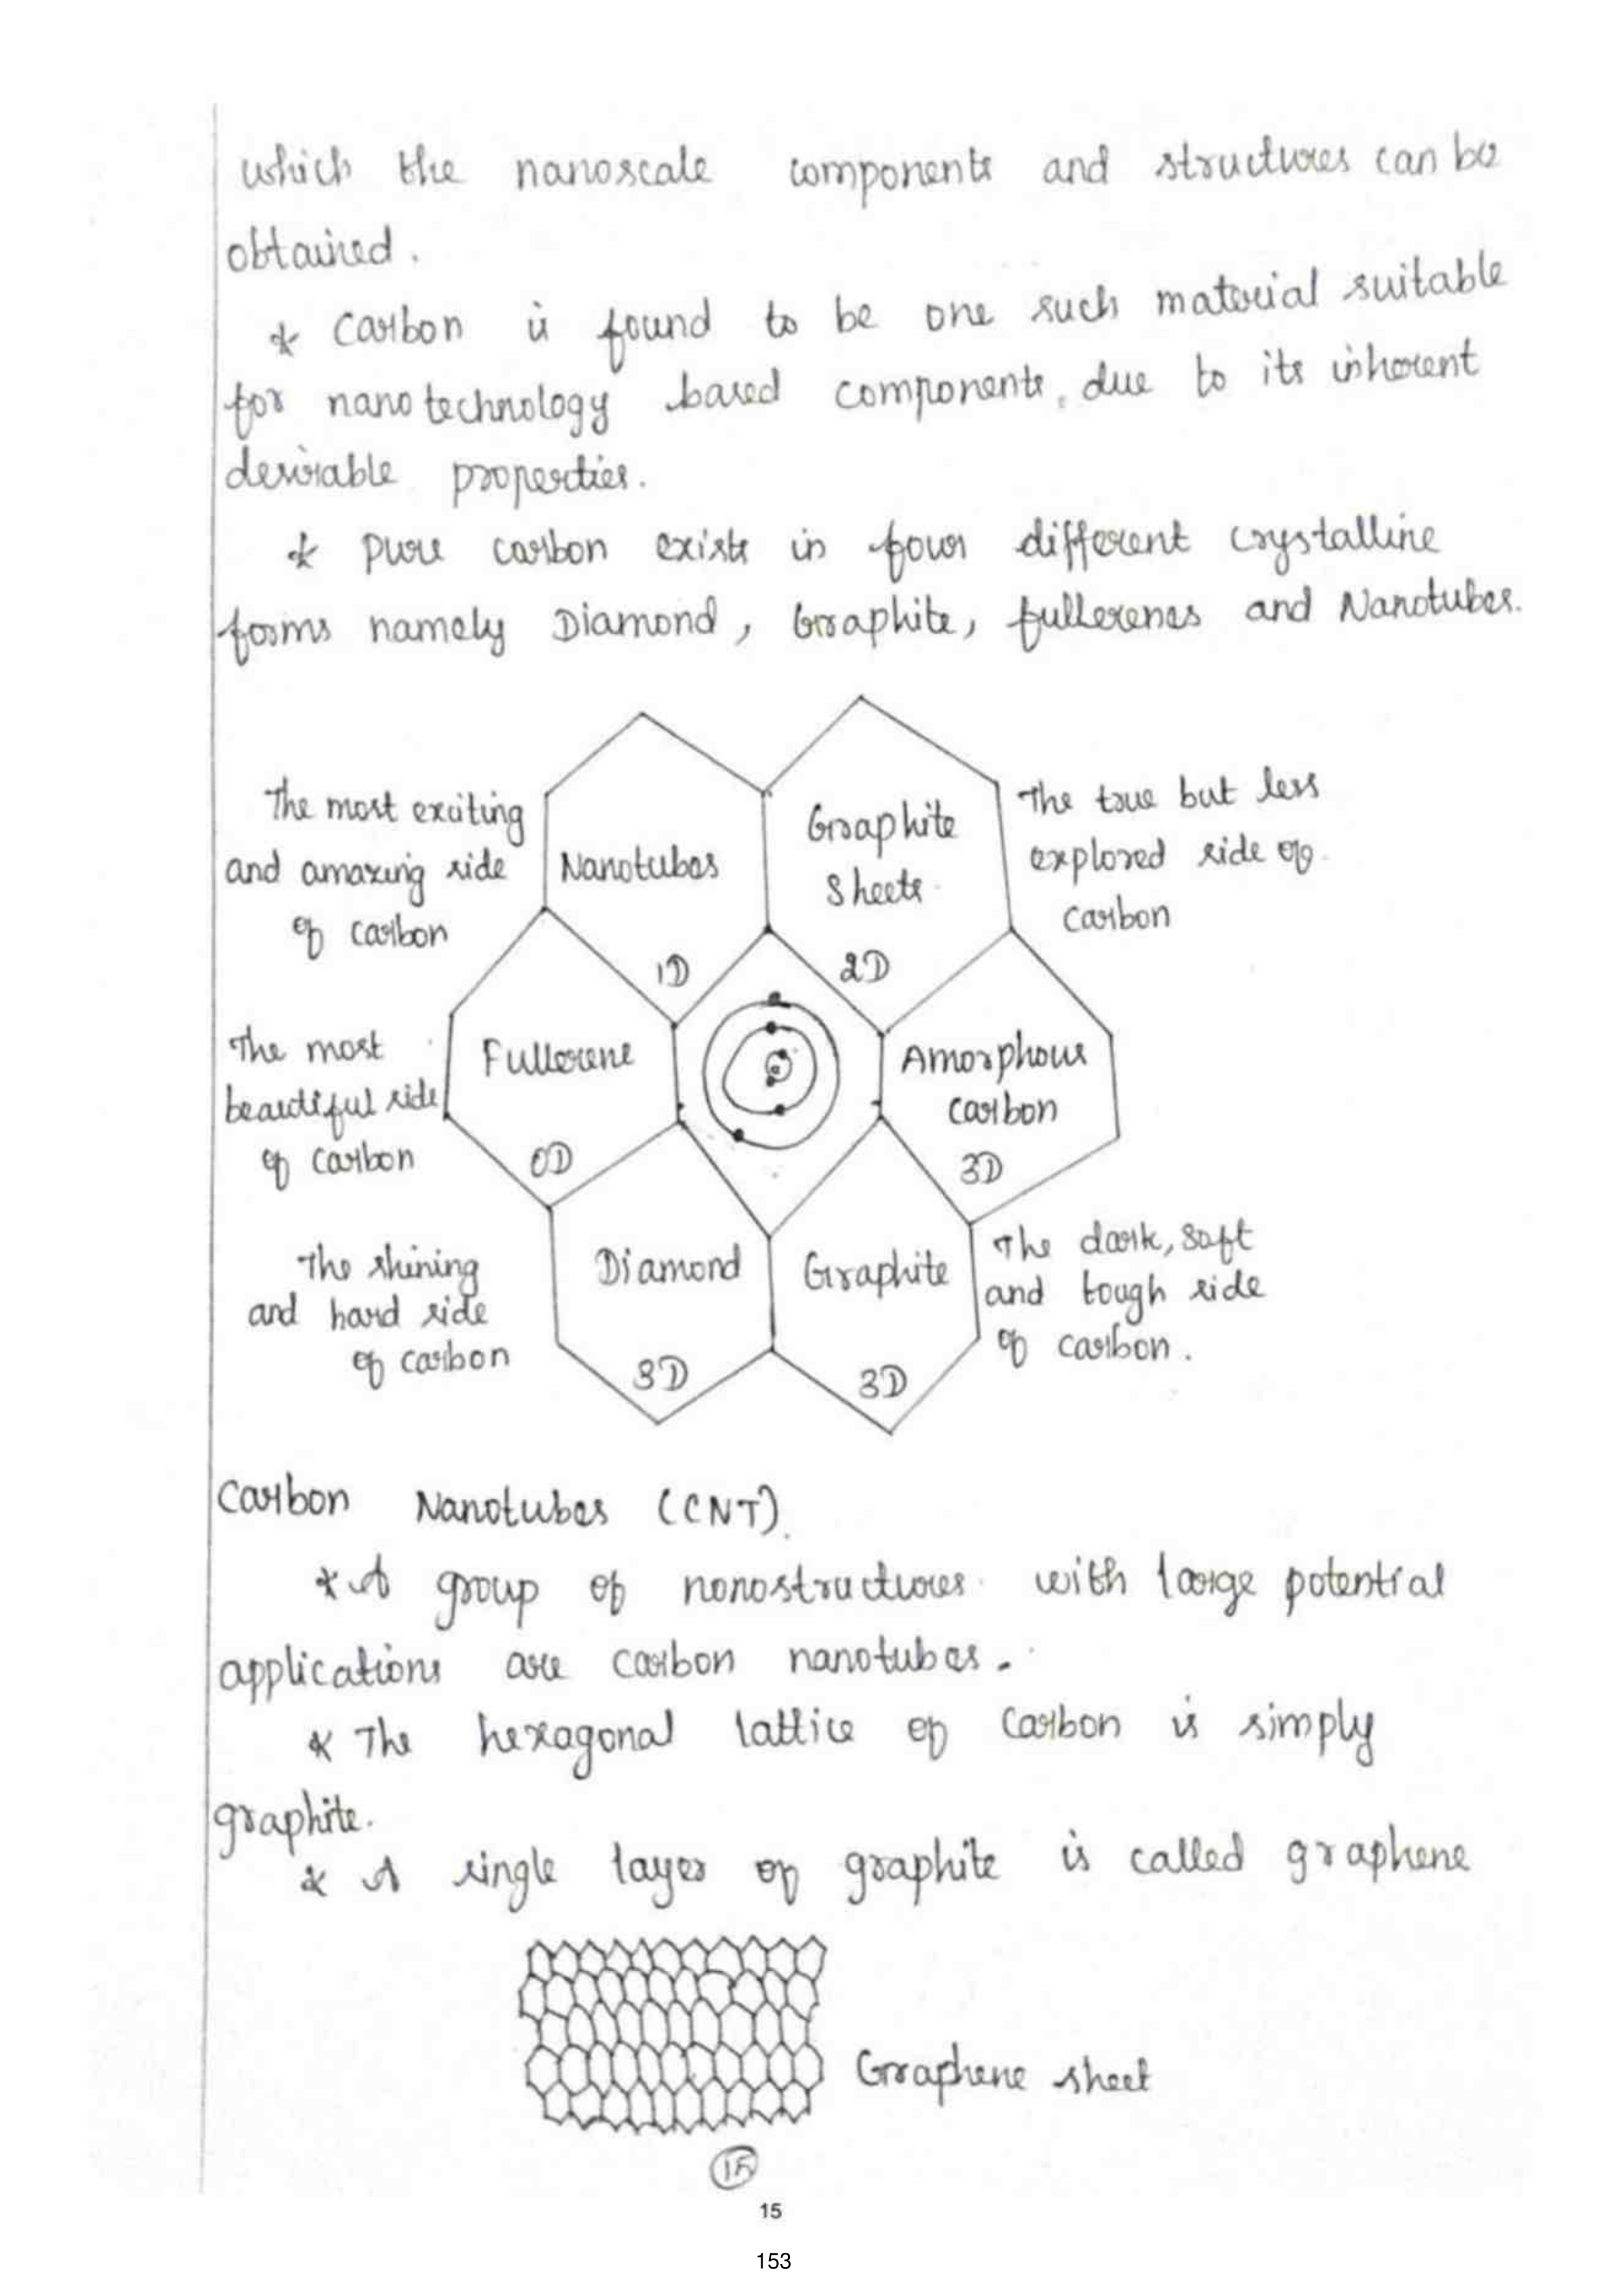 which the nanoscale components and structures can be
obtained.
* Carbon is found to be one such material suitable
for nanotechnology based components, due to its inherent
desirable properties.
* Pure carbon exists in four different crystalline
forms namely Diamond, Graphite, fullerenes and Nanotubes.
The most exciting
and amazing side
of carbon
Nanotubes
1D
Graphite
Sheets
2D
The true but less
explored side of
Carbon
The most
beautiful side
of carbon
Fullerene
0D
Amorphous
carbon
3D
The shining
and hard side
of carbon
Diamond
3D
Graphite
3D
The dark, soft
and tough side
of carbon.
Carbon Nanotubes (CNT).
* A group of nonostructures with large potential
applications are carbon nanotubes.
* The hexagonal lattice of Carbon is simply
graphite.
* A single layer of graphite is called graphene
Graphene sheet
15
15
153